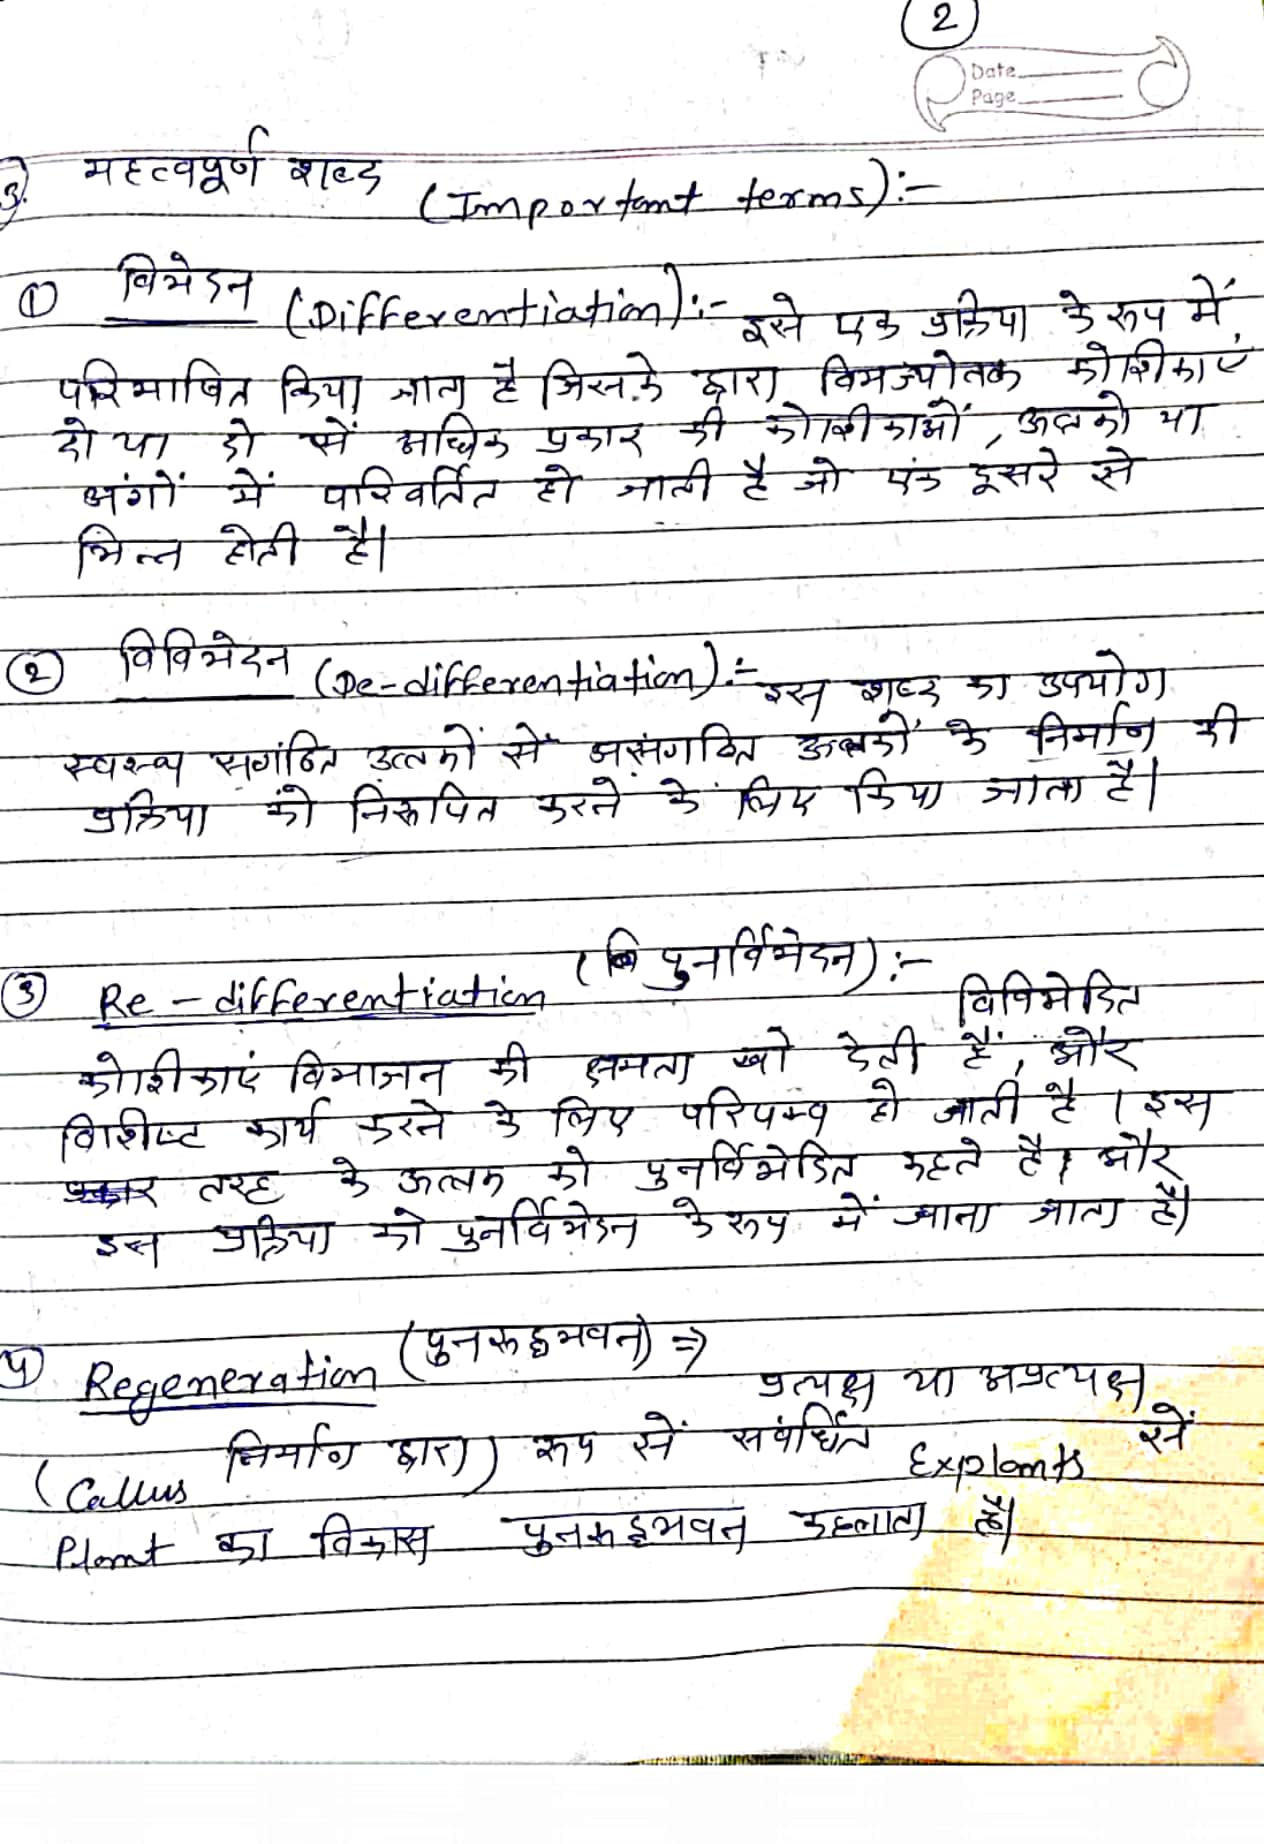 2
Date
Page
3. महत्वपूर्ण शब्द (Important terms):-
① विभेदन (Differentiation):- इसे एक प्रक्रिया के रूप में
परिभाषित किया जाता है जिसके द्वारा विभज्योतक कोशिकाएं
दो या दो से अधिक प्रकार की कोशिकाओं, ऊतको या
अंगों में परिवर्तित हो जाती है जो एक दूसरे से
भिन्न होती है।
② विविभेदन (De-differentiation):- इस शब्द का उपयोग
स्वस्थ्य सगंठित उत्तकों सें असंगठित ऊतकों के निर्माण की
प्रक्रिया को निरूपित करने के लिए किया जाता है।
③ Re-differentiation (पुनर्विभेदन):-
विविभेदित
कोशिकाएं विभाजन की क्षमता खो देती हैं, और
विशिष्ट कार्य करने के लिए परिपक्व हो जाती है। इस
तरह के ऊत्तक को पुनर्विभेदित कहते है। और
इस प्रक्रिया को पुनर्विभेदन के रूप में जाना जाता है।
4 Regeneration (पुनरूद्भवन) ⇒
प्रत्यक्ष या अप्रत्यक्ष
(Callus निर्माण द्वारा) रूप सें सवंर्धित Explants सें
Plant का विकास पुनरूद्भवन कहलाता है।